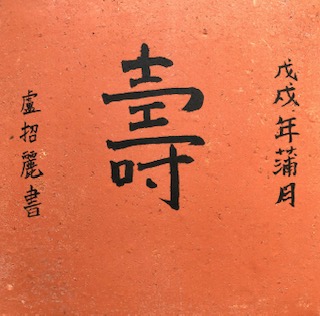 戊戌年蒲月
壽
盧招麗書